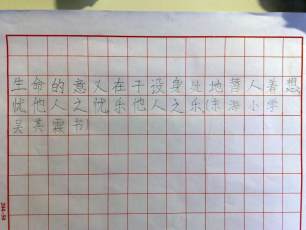 生命的意义在于设身处地替人着想
忧他人之忧乐他人之乐(东港小学
吴美霖书)